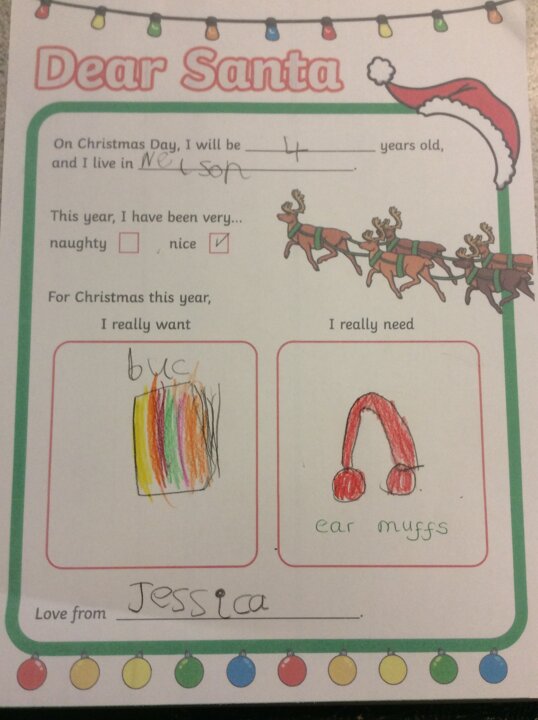 Dear Santa
On Christmas Day, I will be 4 years old,
and I live in Nelson.
This year, I have been very...
naughty nice ✓
For Christmas this year,
I really want I really need
buc
ear muffs
Love from Jessica.